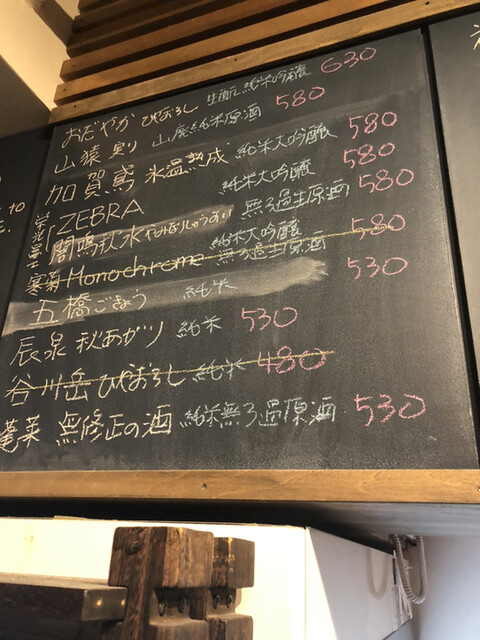 おだやか ひやおろし 生酛純米吟醸 630
山猿 彩り 山廃純米原酒 580
加賀鳶 氷温熟成 純米大吟醸 580
栄光冨士 ZEBRA 純米大吟醸 580
闇鳴秋水 やみなりしゅうすい 無ろ過生原酒 580
寒菊 Monochrome 純米大吟醸 無ろ過生原酒 580
五橋 ごきょう 純米 530
辰泉 秋あがり 純米 530
谷川岳 ひやおろし 純米 480
蓬莱 無修正の酒 純米無ろ過原酒 530
to